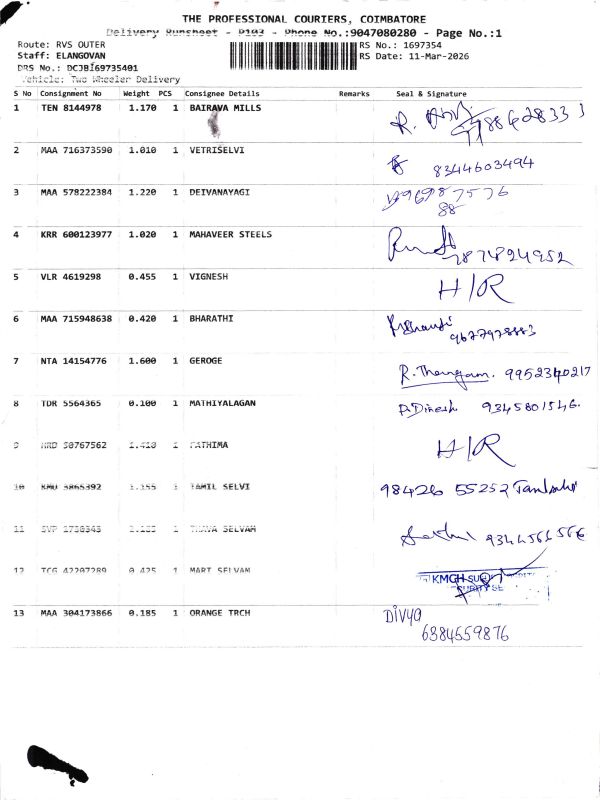 THE PROFESSIONAL COURIERS, COIMBATORE
Delivery Runsheet - P103 - Phone No.:9047080280 - Page No.:1
Route: RVS OUTER
RS No.: 1697354
Staff: ELANGOVAN
RS Date: 11-Mar-2026
DRS No.: DCJBI69735401
Vehicle: Two Wheeler Delivery
S No Consignment No Weight PCS Consignee Details Remarks Seal & Signature
1 TEN 8144978 1.170 1 BAIRAVA MILLS
2 MAA 716373590 1.010 1 VETRISELVI 8344603494
3 MAA 578222384 1.220 1 DEIVANAYAGI
88
4 KRR 600123977 1.020 1 MAHAVEER STEELS 7871824952
5 VLR 4619298 0.455 1 VIGNESH H/R
6 MAA 715948638 0.420 1 BHARATHI
7 NTA 14154776 1.600 1 GEROGE R. Thangam. 9952340217
8 TDR 5564365 0.100 1 MATHIYALAGAN P. Dinesh 9345801546.
9 50767562 1.410 1 FATHIMA H/R
10 KMU 5865392 1.155 1 TAMIL SELVI 98426 55252
11 SVP 1750345 1 THAVA SELVAM
12 TCG 42207289 0.425 1 MARI SELVAM KMCH
13 MAA 304173866 0.185 1 ORANGE TRCH Divya
6384559876